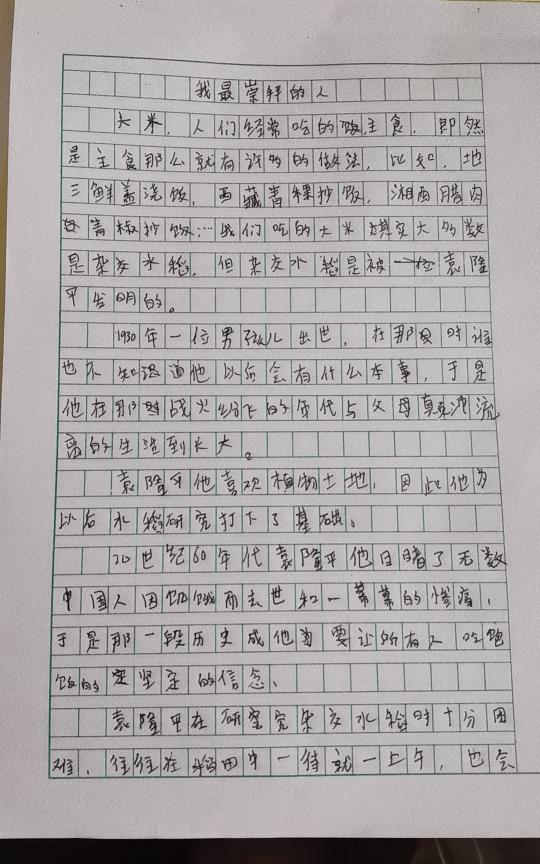 我最崇拜的人
大米，人们经常吃的主食，即然
是主食那么就有许多的做法，比如，地
三鲜盖浇饭，西藏青稞抄饭，湘西腊肉
青椒抄饭…我们吃的大米其实大多数
是杂交水稻，但杂交水稻是被一位袁隆
平发明的。
1930年一位男孩儿出世，在那时谁
也不知道他以后会有什么本事，于是
他在那战火纷飞的年代与父母流
离的生活到长大。
袁隆平他喜欢植物土地，因此他为
以后水稻研究打下了基础。
20世纪60年代袁隆平他目睹了无数
中国人因饥饿而去世和一幕幕的惨痛，
于是那一段历史成他要让所有人吃饱
饭的坚定的信念、
袁隆平在研究杂交水稻时十分困
难，往往在稻田中一待就一上午，也会